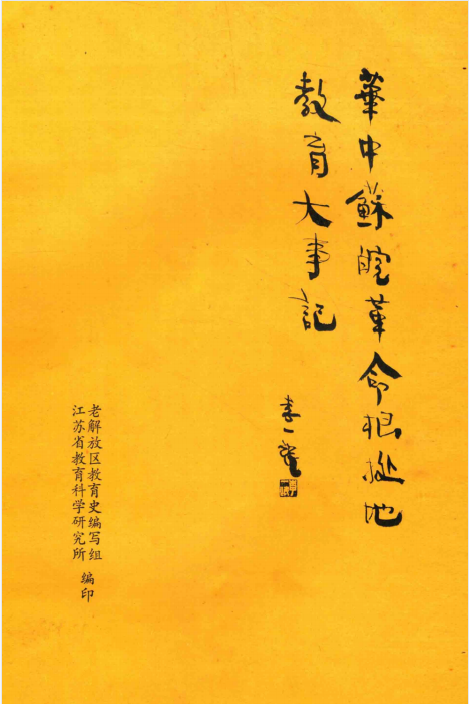 華中蘇皖革命根据地
教育大事記
李一氓
老解放区教育史编写组
江苏省教育科学研究所
编印